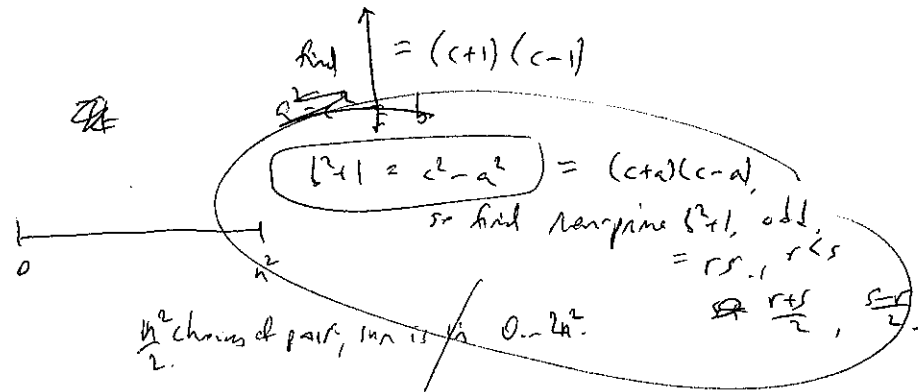 find = (c+1)(c-1)
b²+1 = c²-a² = (c+a)(c-a),
so find non-prime b²+1, odd,
= rs, r<s
r+s/2, s-r/2.
0 n²
n²/2 choices of pair, sum is in 0...2n².